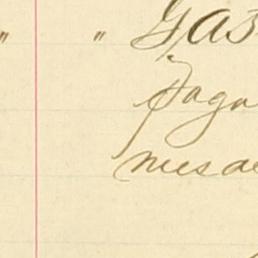 " " Gas
Paga
mesa